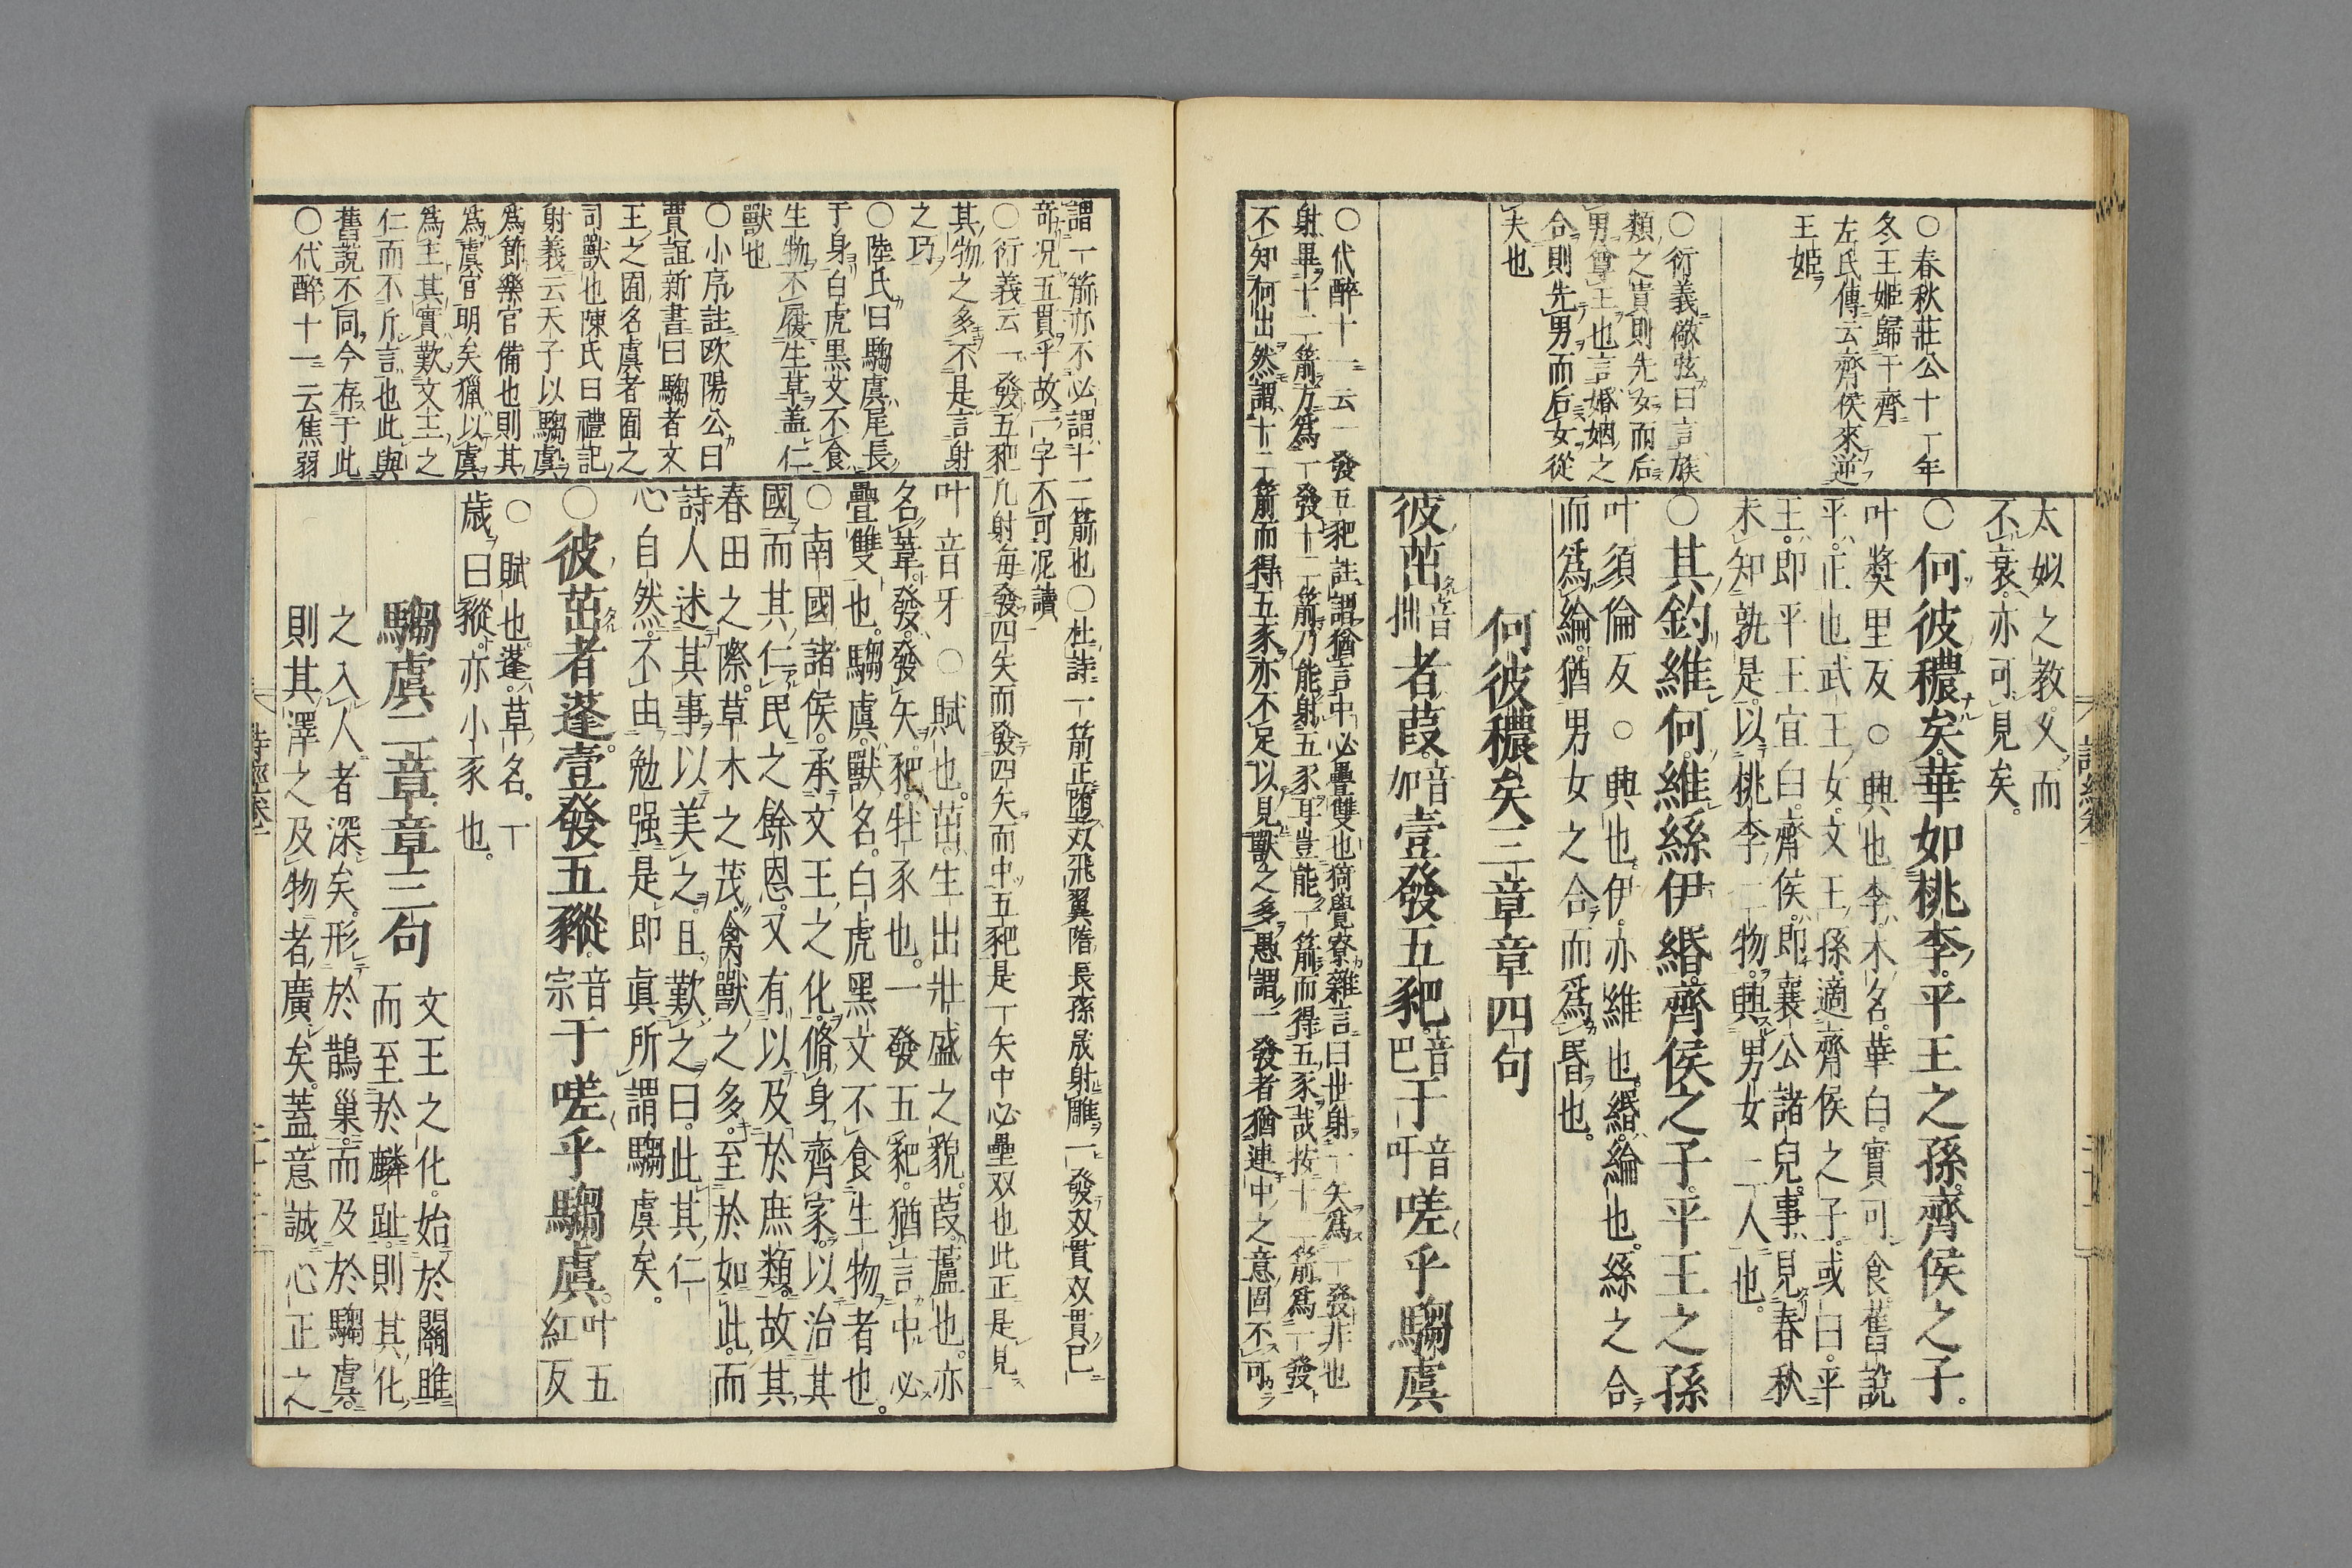 ○春秋莊公十一年
冬王姬歸于齊
左氏傳云齊侯來逆
王姬
○衍義徹弦曰言族
類之貴則先女而后
男尊王也言婚姻之
合則先男而后女從
夫也
太姒之教久而
不衰亦可見矣。
○何彼穠矣。華如桃李。平王之孫。齊侯之子。
叶獎里反○興也。李木名。華白。實可食。舊說
平。正也。武王女。文王孫。適齊侯之子。或曰。平
王。即平王宜臼。齊侯。即襄公諸兒。事見春秋
未知孰是。以桃李二物。興男女二人也。
○其釣維何。維絲伊緡。齊侯之子。平王之孫
叶須倫反○興也。伊。亦維也。緡。綸也。絲之合
而爲綸。猶男女之合而爲昏也。
何彼穠矣三章章四句
彼茁音拙者葭。音加壹發五豝。音巴于音吁嗟乎騶虞
○代醉十一云一發五豝註謂猶言中必疊雙也猗覺寮雜言曰世射一矢爲一發非也
射畢十二箭方爲一發十二箭乃能射五豕耳豈能一箭而得五豕哉按十二箭爲一發
不知何出然謂十二箭而得五豕亦不足以見獸之多愚謂一發者猶連中之意固不可
謂一箭亦不必謂十二箭也○杜詩一箭正墮双飛翼階長孫晟射雕一發双貫双貫已
奇況五貫乎故一字不可泥讀
○衍義云一發五豝凡射每發四矢而發四矢而中五豝是一矢中必疊双也此正是見
其物之多不是言射
之巧
○陸氏曰騶虞尾長
于身白虎黒文不食
生物不履生草盖仁
獸也
○小序註欧陽公曰
賈誼新書曰騶者文
王之囿名虞者囿之
司獸也陳氏曰禮記
射義云天子以騶虞
爲節樂官備也則其
爲虞官明矣獵以虞
爲主其實歎文王之
仁而不斥言也此與
舊說不同今存于此
○代醉十一云焦弱
叶音牙○賦也。茁。生出壯盛之貌。葭。蘆也。亦
名葦。發。發矢。豝。牡豕也。一發五豝。猶言中必
疊雙也。騶虞。獸名。白虎黑文不食生物者也。
○南國諸侯。承文王之化。脩身齊家。以治其
國。而其仁民之餘恩。又有以及於庶類。故其
春田之際。草木之茂。禽獸之多。至於如此。而
詩人述其事以美之。且歎之曰。此其仁
心自然。不由勉强。是即眞所謂騶虞矣。
○彼茁者蓬。壹發五豵。音宗于嗟乎騶虞。叶五紅反
○賦也。蓬。草名。一
歳曰豵。亦小豕也。
騶虞二章章三句
文王之化。始於關雎
而至於麟趾。則其化
之入人者深矣。形於鵲巢。而及於騶虞。
則其澤之及物者廣矣。蓋意誠心正之